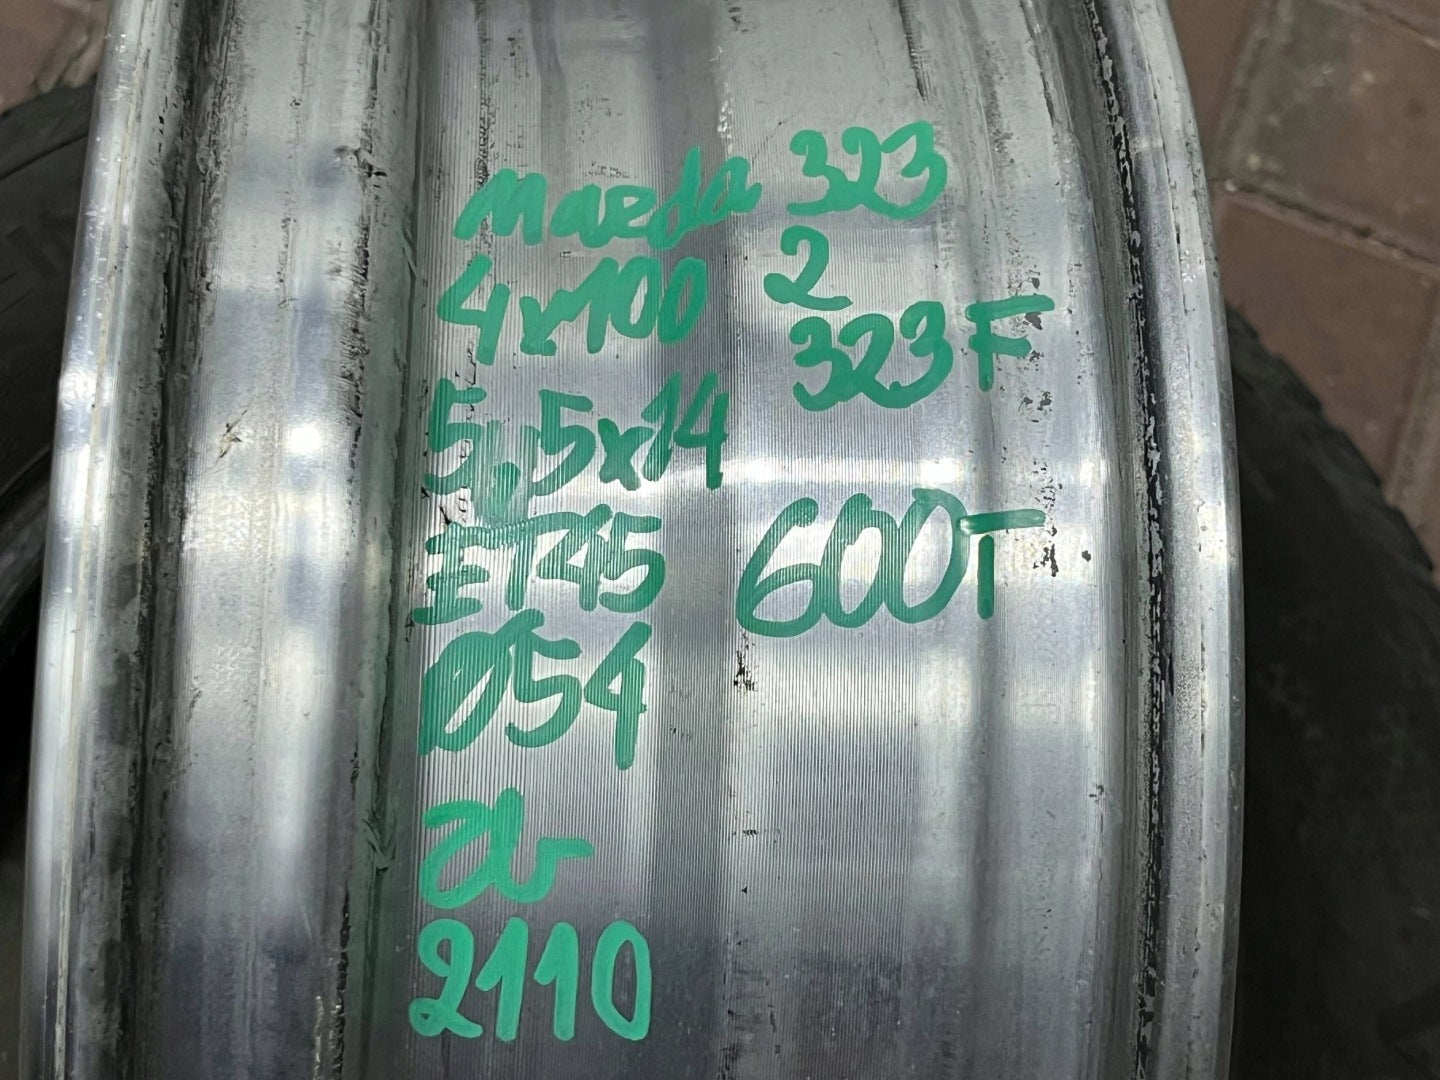 Mazda 323
4x100 2
323F
5,5x14
ET45 600T
Ø54
2110